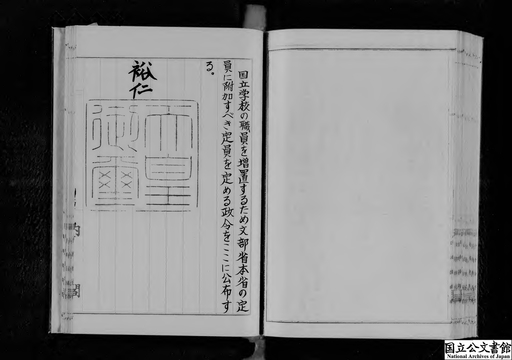 国立学校の職員を増置するため文部省本省の定
員に附加すべき定員を定める政令をここに公布す
る。
裕仁
天皇
御璽
国立公文書館
National Archives of Japan